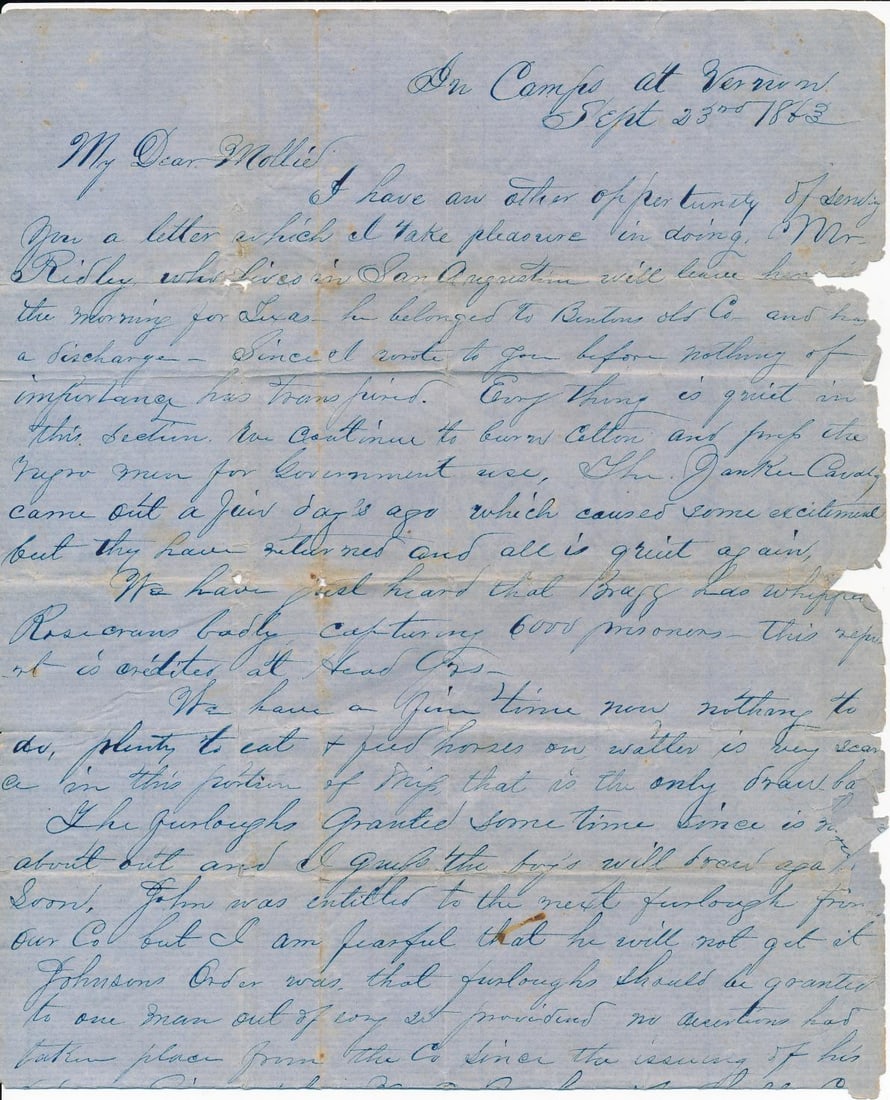 In Camps at Vernon
Sept 23rd 1863
My Dear Mollie
I have an other oppertunity of sending
you a letter which I take pleasure in doing. Mr
Ridley who lives in San Augustine will leave here
the morning for Texas he belonged to Bentons old Co and has
a discharge – Since I wrote to you before nothing of
importance has transpired. Evry thing is quiet in
this section. We continue to burn Cotton and press the
Negro men for Government use, The Yankee Cavalry
came out a fiew day's ago which caused some excitement
but thy have returned and all is quiet again,
We have just heard that Bragg has whipped
Rosecrans badly capturing 6000 prisoners – this repo
rt is credited at Head Qrs –
We have a fine time now nothing to
do, plenty to eat & feed horses on watter is very scar
ce in this portion of Miss that is the only draw ba
The furloughs Granted some time since is
about out and I guess the boy's will draw aga
soon. John was entitled to the next furlough from
our Co but I am fearful that he will not get it
Johnsons Order was, that furloughs should be granted
to one man out of evry 25 provided no desertions had
taken place from the Co since the issuing of his